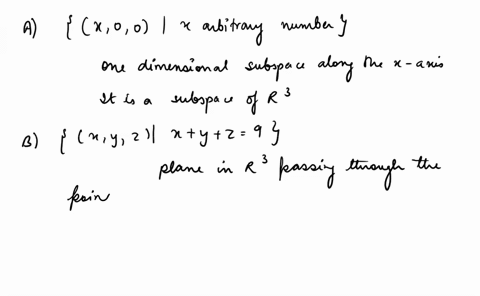 A) { (x, 0, 0) | x arbitrary number }
one dimensional subspace along the x-axis
It is a subspace of R³
B) { (x, y, z) | x+y+z = 9 }
plane in R³ passing through the
poin